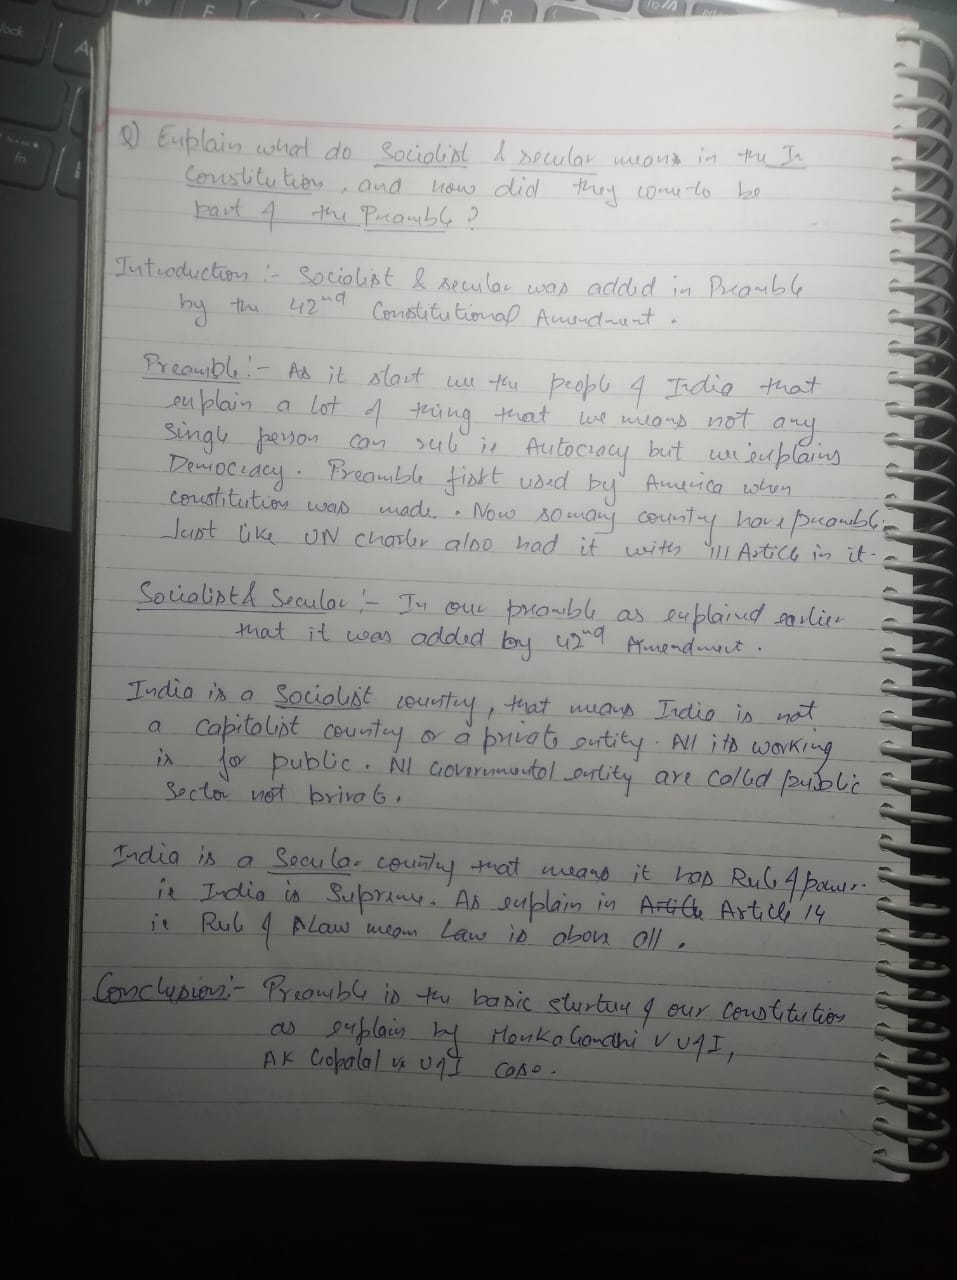 Q) Explain what do Socialist & secular means in the In
Constitution, and how did they come to be
part of the Preamble?
Introduction :- Socialist & secular was added in Preamble
by the 42nd Constitutional Amendment.
Preamble :- As it start we the people of India that
explain a lot of thing that we means not any
single person can rule ie Autocracy but we explains
Democracy. Preamble first used by America when
constitution was made. Now so many country have preamble.
Just like UN charter also had it with 111 Article in it.
Socialist & Secular :- In our preamble as explained earlier
that it was added by 42nd Amendment.
India is a Socialist country, that means India is not
a capitalist country or a private entity. All its working
is for public. All Governmental entity are called public
Sector not private.
India is a Secular country that means it has Rule of power
ie India is Supreme. As explain in Article Article 14
ie Rule of Law mean Law is above all.
Conclusion :- Preamble is the basic of our constitution
as explain by Menka Gandhi v UOI,
AK Gopalal vs UOI case.
lock
A
F
8
fn